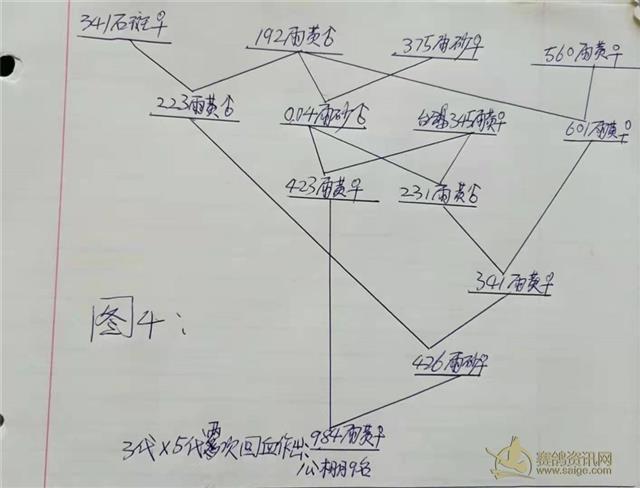 341石斑♀
192雨黄♂
375雨砂♀
560雨黄♀
223雨黄♂
004雨砂♂
台湾345雨黄♀
601雨黄♀
423雨黄♀
231雨黄♂
341雨黄♀
图4:
426雨砂♀
3代X5代 次回血作出984雨黄♀
公棚9名
赛鸽资讯网
www.saige.com